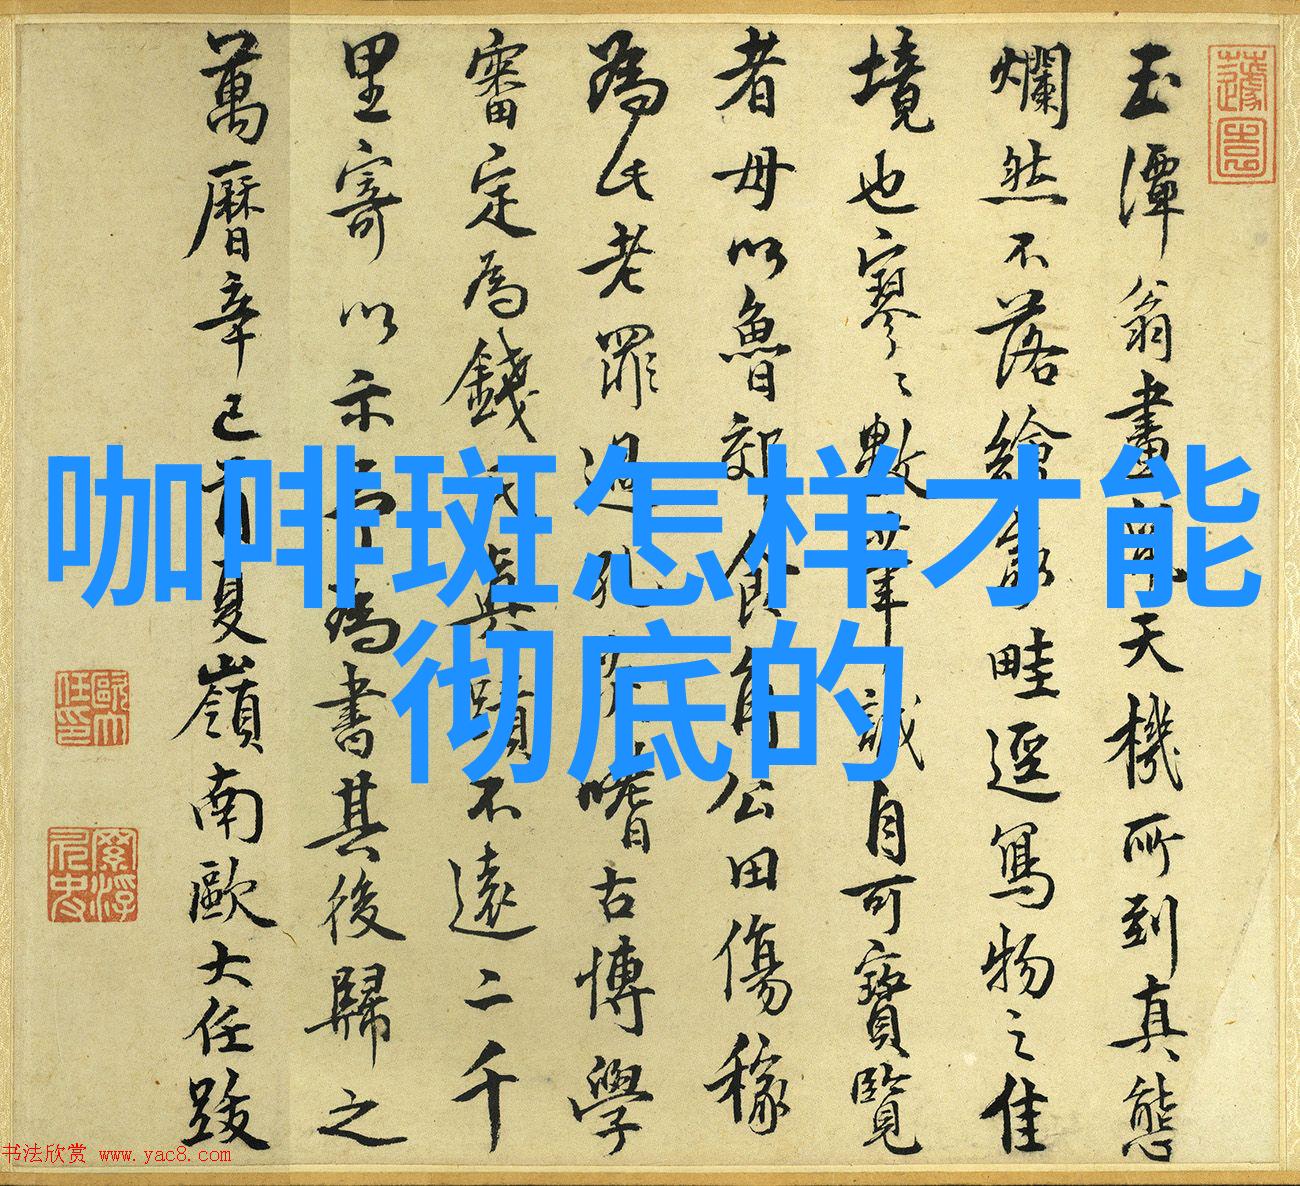 玉潭翁畫[...]天機所到真態
爛然不落繪[...]畦逕寫物之佳
境也寥〻數筆誠自可寶覽
者毋以魯郊[...]食[...]公田傷稼
為氏老罪過[...]嗜古博學
審定為錢氏真蹟不遠二千
里寄以示[...]為書其後歸之
萬曆辛巳首夏嶺南歐大任跋
咖啡斑怎样才能
彻底的
书法欣赏 www.yac8.com